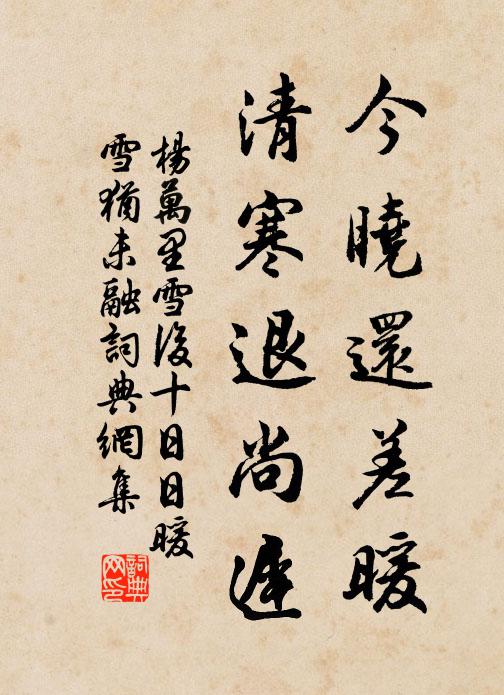 今曉還差暖
清寒退尚遲
楊萬里雪後十日日暖
雪猶未融詞典網集
詞典
网印